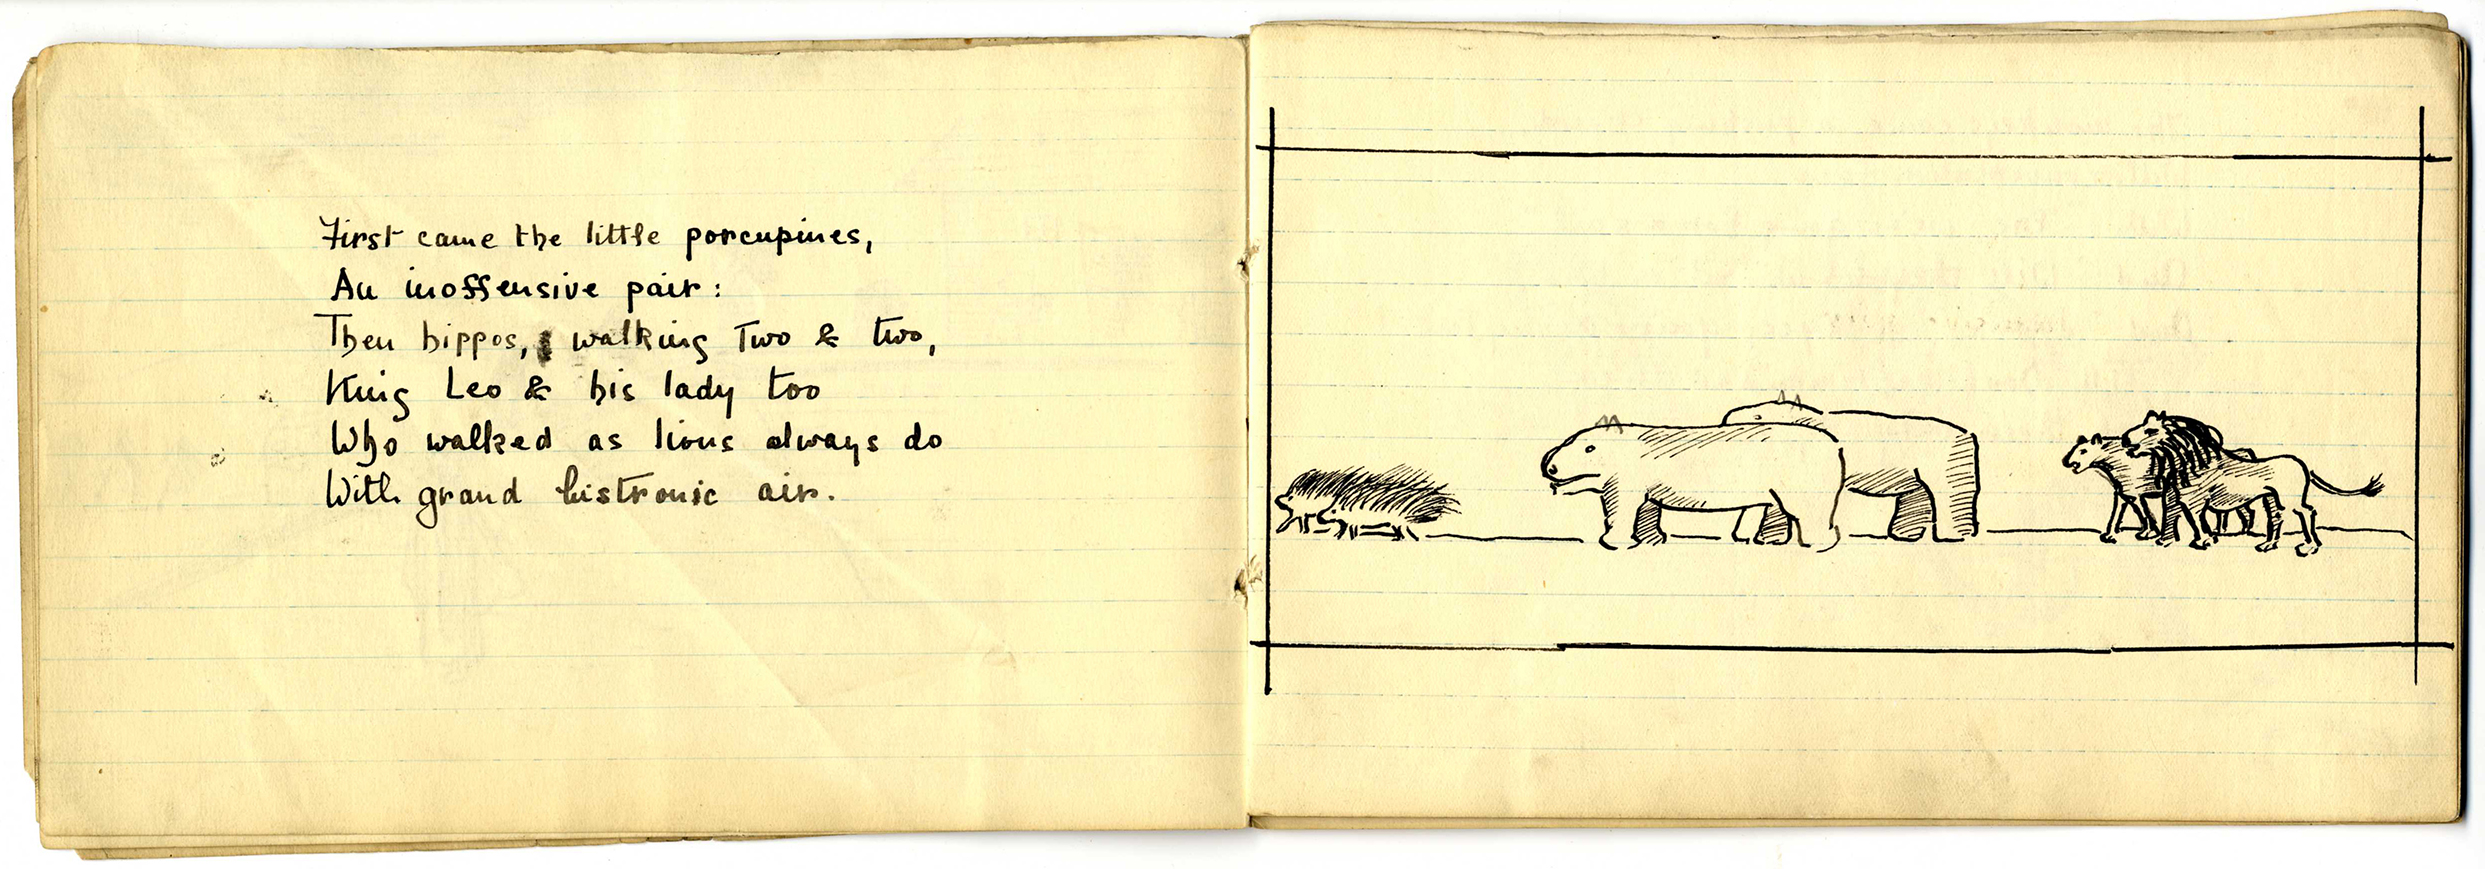 First came the little porcupines,
An inoffensive pair:
Then hippos, walking Two & two,
King Leo & his lady too
Who walked as lions always do
With grand histronic air.